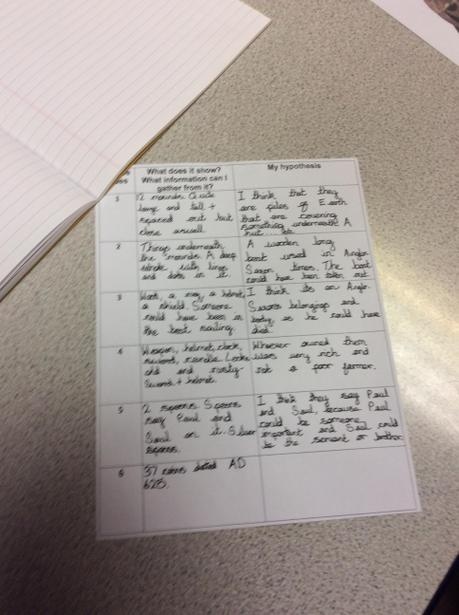 What does it show?
What information can I
gather from it?
My hypothesis
1
12 mounds. Quite
long and tall +
spaced out but
close
I think that they
are piles of Earth
that are covering
something underneath A
hut
2
Things underneath
the mounds. A deep
with lines
and dots in it.
A wooden long
boat used in Anglo
Saxon times. The boat
could have been
3
a helmet,
a shield. Someone
could have been in
the boat sailing.
I think its an Anglo
Saxons belongings and
as he could have
died.
4
Weapon, helmet, clock,
sword,
old and rusty
sword + helmet.
Whoever owned them
was very rich and
not a poor farmer.
5
2 spoons. Spoons
say Paul and
Saul on it. Silver
spoons.
I think they say Paul
and Saul, because Paul
could be someone
important and Saul could
be the servant or brother.
6
37 coins dated AD
625.